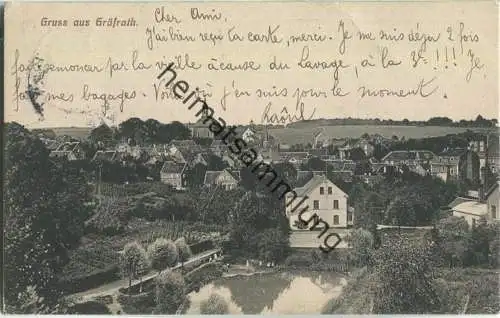 Gruss aus Gräfrath.
Cher Ami.
J'ai bien reçu ta carte, merci. Je me suis déjà 2 fois
fait semoncer par la vieille à cause du lavage, à la 3e !!! Je
fais mes bagages. Voilà j'en suis pour le moment.
Raoul
thematik-ansichtskarten
heimatsammlung.de